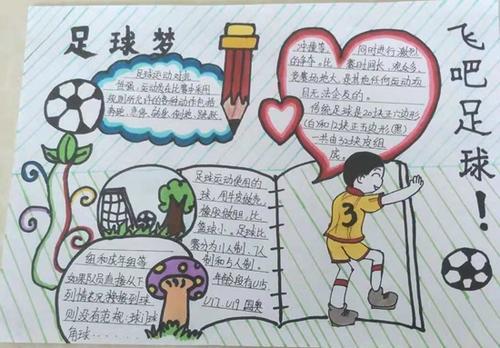 足球梦
足球运动对抗
性强,运动员在比赛中采用
规则所允许的各种动作包括
奔跑、急停、转身、倒地、跳跃、
冲撞等 同时进行激烈
的争夺。比赛时间长、观众多、
竞赛场地大,是其他任何运动项
目无法企及的。
传统足球是20块正六边形
(白)和12块正五边形(黑)
一共由32块皮组
成。
飞吧足球!
足球运动使用的
球,用牛皮做壳,
橡胶做胆,比
篮球小。足球比
赛分为11人制、7人
制和5人制。
年龄段有U15
U17、U19 国奥
组和成年组等
如果队员直接从下
列情况接到球
则没有犯规:球门球
角球……
3